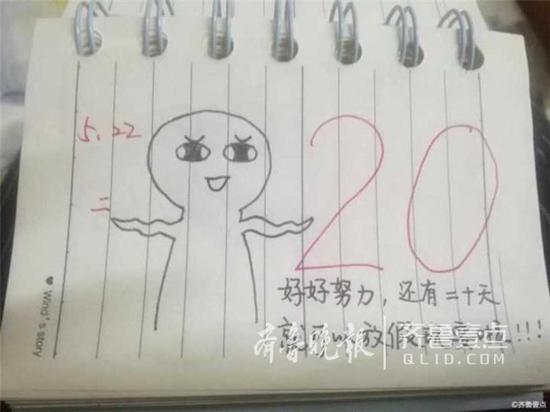 5.22
二
20
好好努力，还有二十天
就可以放假啦!!!
Wind's story
齐鲁晚报
齐鲁壹点
QLID.COM
©齐鲁壹点